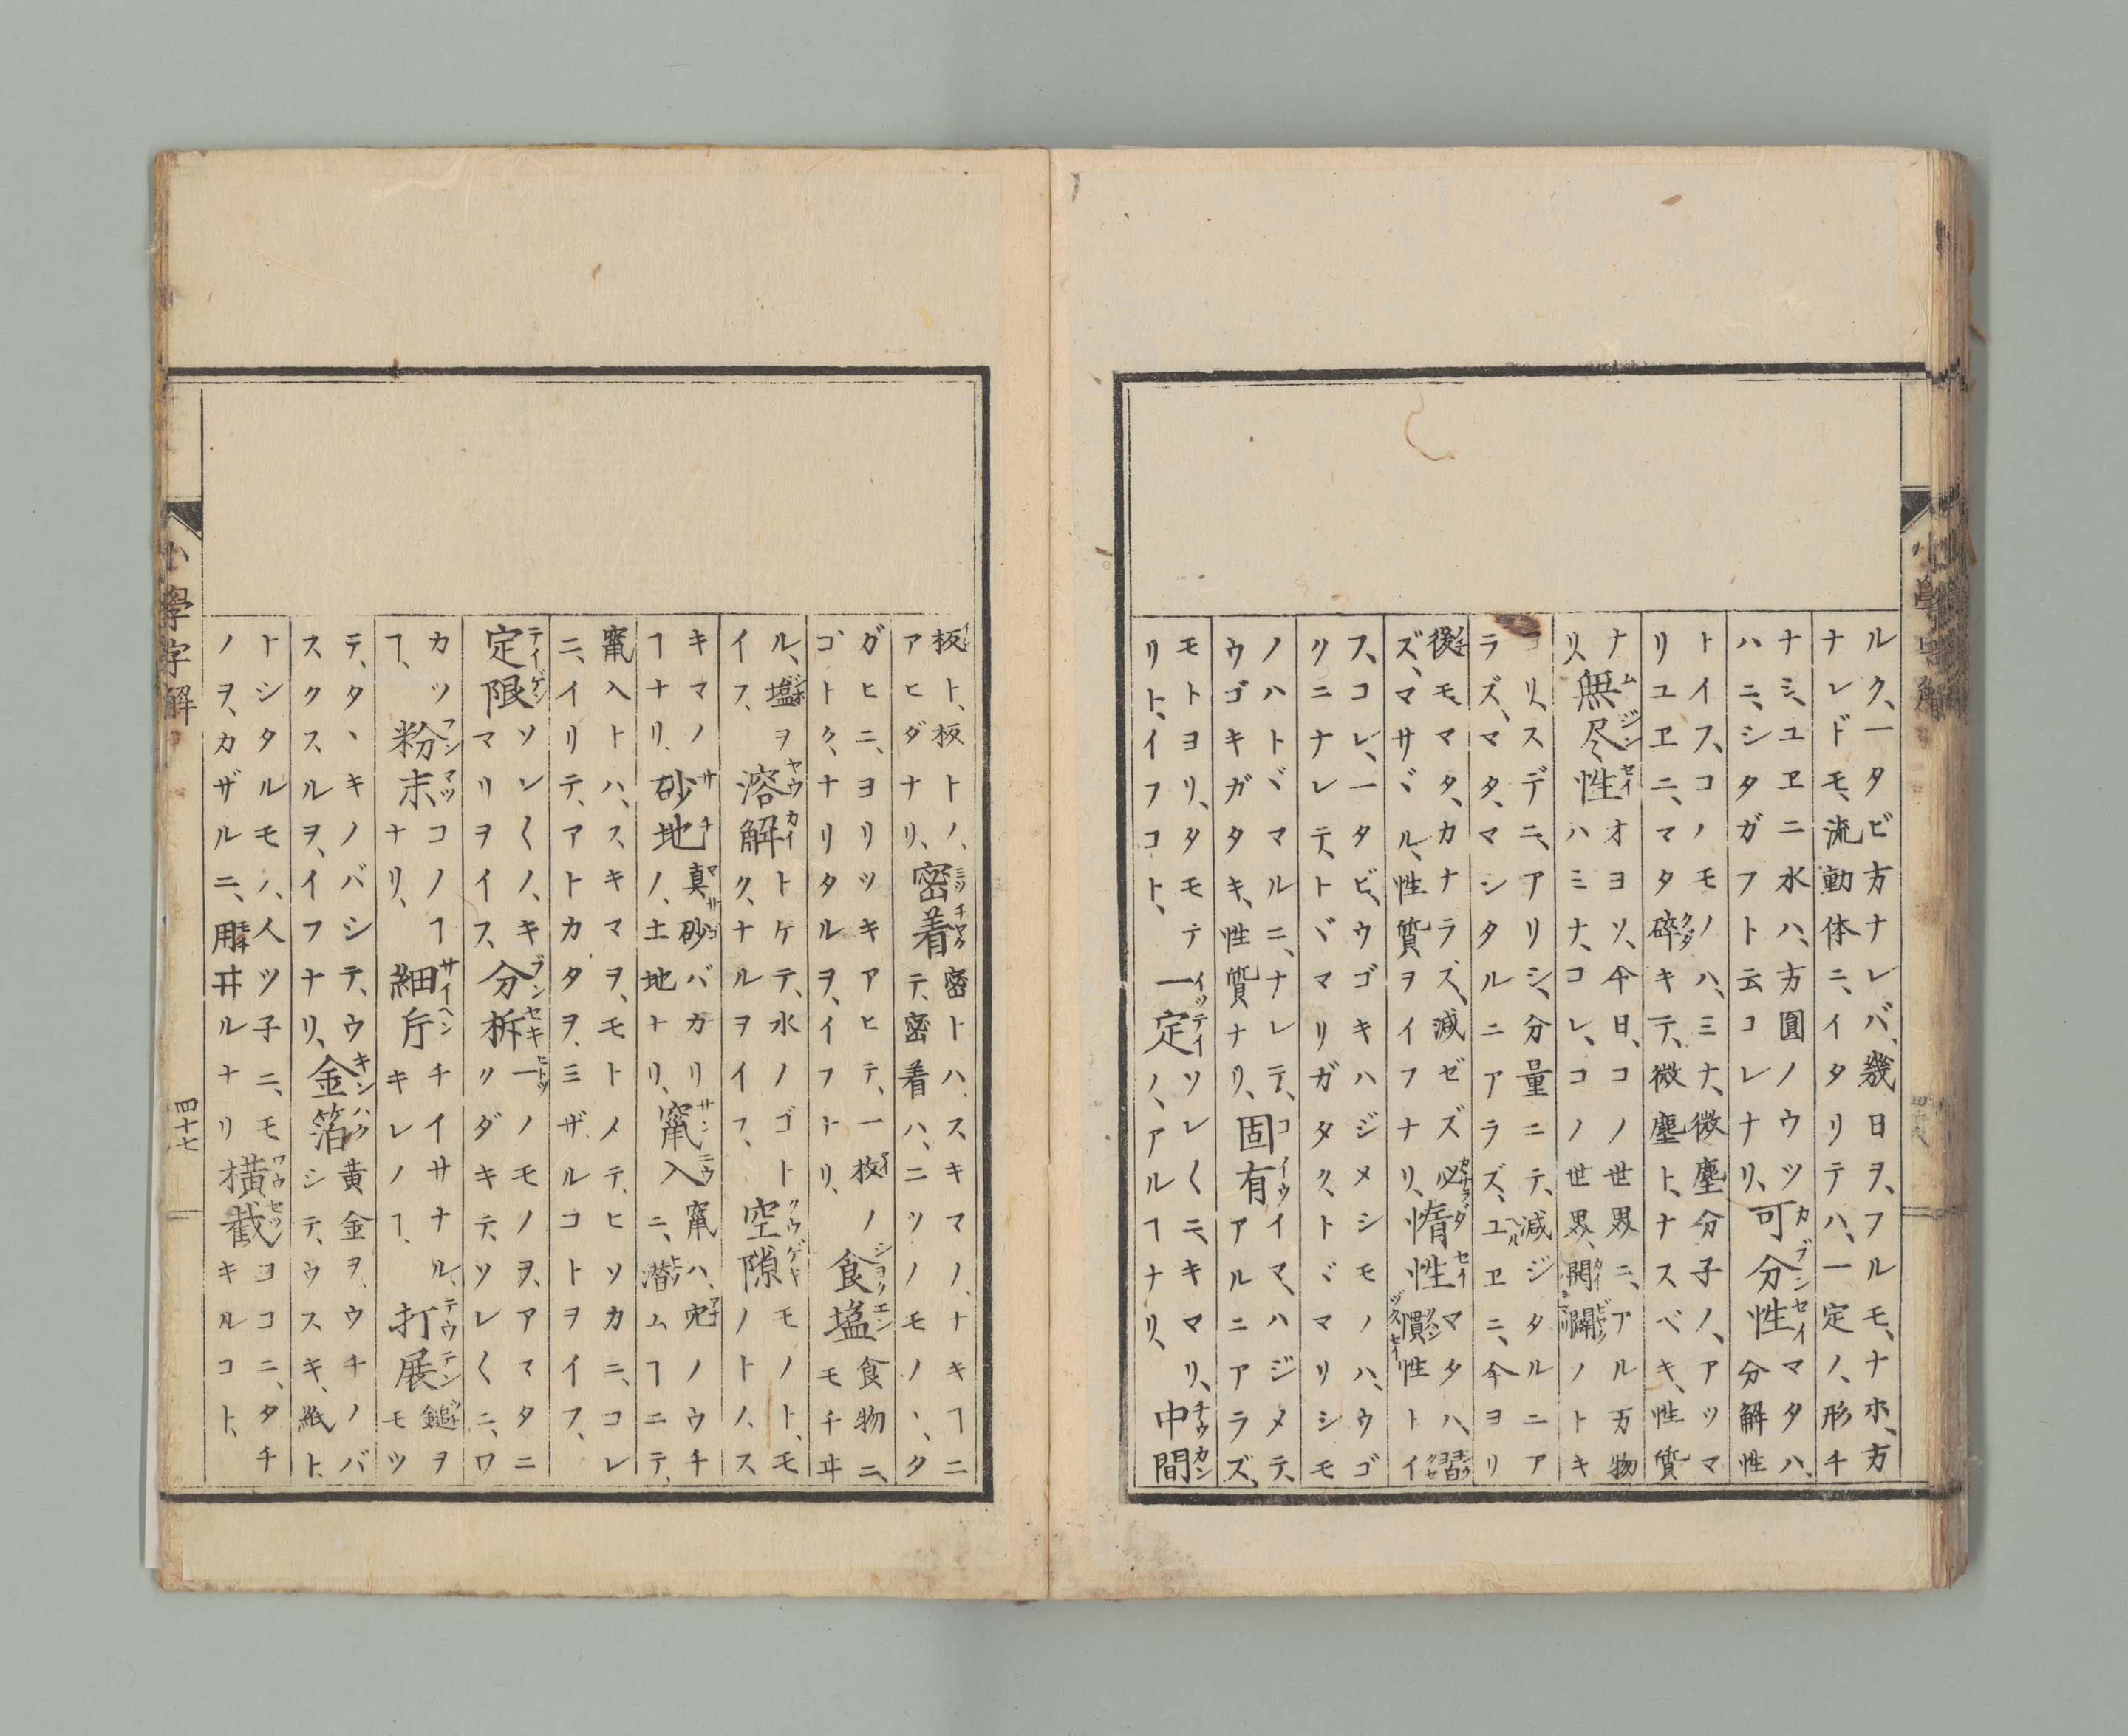 ルク、一タビ方ナレバ、幾日ヲ、フルモ、ナホ、方
ナレドモ、流動体ニ、イタリテハ、一定ノ、形チ
ナミ、ユヱニ水ハ、方圓ノウツ
ハニ、シタガフト云コレナリ、
可分性 マタハ、
分解性
トイフ、コノモノハ、ミナ、微塵分子ノ、アツマ
リユヱニ、マタ碎キテ、微塵ト、ナスベキ、性質
ナ
リ、
無尽性 オヨソ、今日、コノ世界ニ、アル万物
ハミナ、コレ、コノ世界、開闢ノトキ
ヨリ、スデニ、アリシ、分量ニテ、減ジタルニア
ラズ、マタ、マシタルニアラズ、ユヱニ、今ヨリ
後モマタ、カナラズ、減ゼズ必
ズ、マサヾル、性質ヲイフナリ、
惰性 マタハ、習
慣性トイ
フ、コレ、一タビ、ウゴキハジメシモノハ、ウゴ
クニナレテ、トヾマリガタク、トヾマリシモ
ノハトヾマルニ、ナレテ、
ウゴキガタキ、性質ナリ、
固有 イマ、ハジメテ、
アルニアラズ、
モトヨリ、タモテ
リト、イフコト、
一定 ソレ〱ニ、キマリ、
ノ、アルヿナリ、
中間
板ト、板トノ、
アヒダナリ、
密着 密トハ、スキマノ、ナキヿニ
テ、密着ハ、ニツノモノヽ、タ
ガヒニ、ヨリツキアヒテ、一枚ノ
ゴトク、ナリタルヲ、イフトリ、
食塩 食物ニ、
モチヰ
ル、塩ヲ
イフ、
溶解 トケテ、水ノゴト
ク、ナルヲイフ、
空隙 モノト、モ
ノトノ、ス
キマノ
ヿナリ、
砂地 真砂バカリ
ノ、土地ナリ、
竄入 竄ハ、穴ノウチ
ニ、潜ムヿニテ、
竄入トハ、スキマヲ、モトメテ、ヒソカニ、コレ
ニ、イリテ、アトカタヲ、ミザルコトヲイフ、
定限 ソレ〱ノ、キ
マリヲイフ、
分柝 一ノモノヲ、アマタニ
クダキテ、ソレ〱ニ、ワ
カツ
ヿ、
粉末 コノヿ
ナリ、
細斤 チイサナル、
キレノヿ、
打展 鎚ヲ
モツ
テ、タヽキノバシテ、ウ
スクスルヲ、イフナリ、
金箔 黄金ヲ、ウチノバ
シテ、ウスキ、紙ト、
トシタルモノ、人ツ子ニ、モ
ノヲ、カザルニ、用ヰルナリ
横截 ヨコニ、タチ
キルコト、
小學字解
四十七